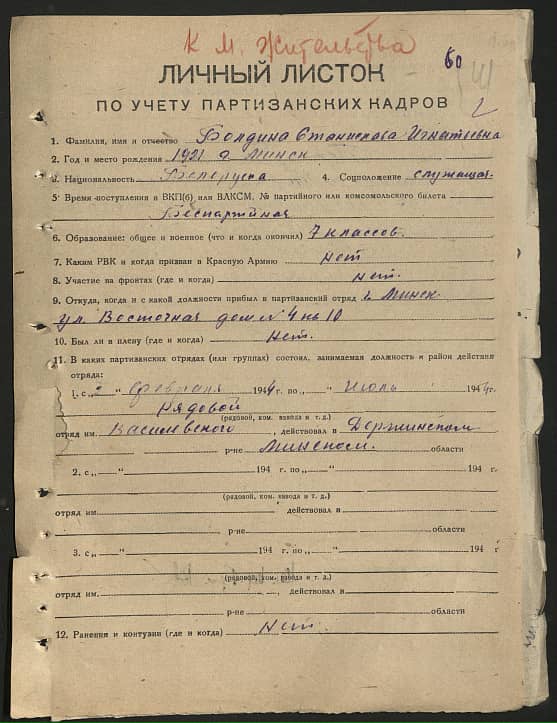 К М. Жительства
60
ЛИЧНЫЙ ЛИСТОК
ПО УЧЕТУ ПАРТИЗАНСКИХ КАДРОВ
1. Фамилия, имя и отчество Болдина Станислава Игнатьевна
2. Год и место рождения 1921 г Минск
3. Национальность Белоруска 4. Соцположение служащая
5. Время поступления в ВКП(б) или ВЛКСМ, № партийного или комсомольского билета
Беспартийная
6. Образование: общее и военное (что и когда окончил) 7 классов.
7. Каким РВК и когда призван в Красную Армию нет
8. Участие на фронтах (где и когда) нет.
9. Откуда, когда и с какой должности прибыл в партизанский отряд г. Минск
ул Восточная дом № 4 кв 10
10. Был ли в плену (где и когда) нет.
11. В каких партизанских отрядах (или группах) состоял, занимаемая должность и район действия
отряда:
1. с „ “ февраля 1944 г. по „ “ июль 1944 г.
Рядовой
(рядовой, ком. взвода и т. д.)
отряд им. Василевского, действовал в Держинском
р-не Минском. области
2. с „ “ 194 г. по „ “ 194 г
(рядовой, ком. взвода и т. д.)
отряд им. , действовал в
р-не области
3. с „ “ 194 г. по „ “ 194 г
(рядовой, ком. взвода и т. д.)
отряд им. , действовал в
р-не области
12. Ранения и контузии (где и когда) Нет.